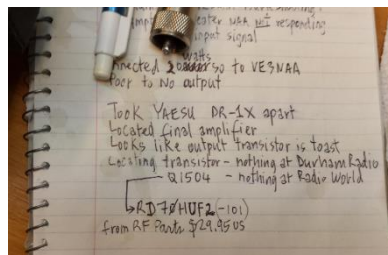 eater NAA NOT responding
input signal
Watts
nected 20 so to VE3NAA
Poor to No output
Took YAESU DR-1X apart
Located final amplifier
Looks like output transistor is toast
Locating transistor - nothing at Durham Radio
Q1504 - nothing at Radio World
RD70HUF2 (-101)
from RF Parts $29.95 US